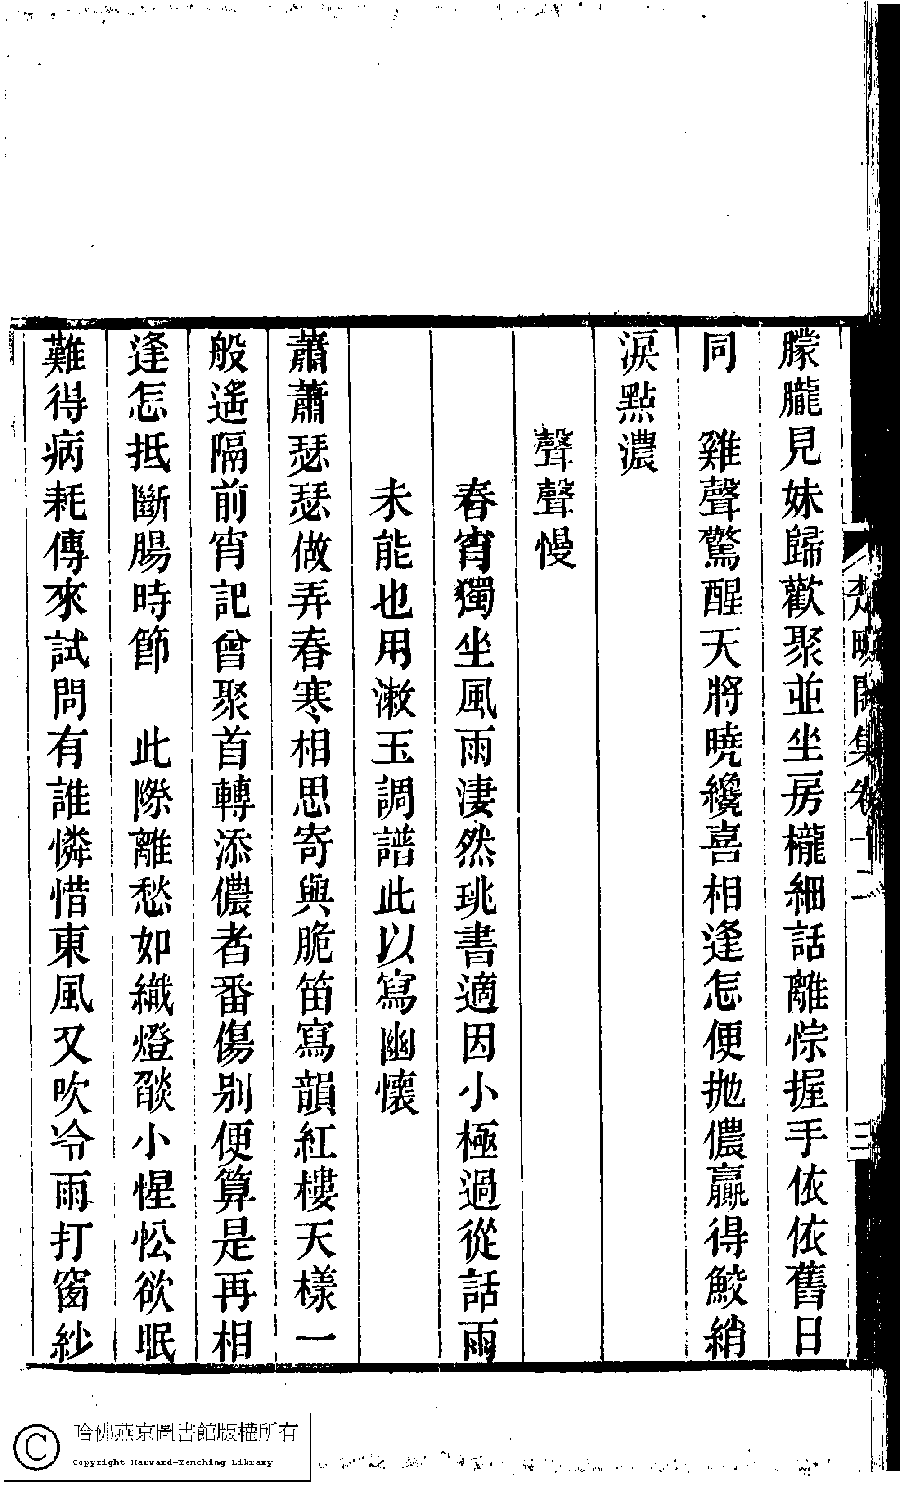 朦朧見妹歸歡聚並坐房櫳細話離悰握手依依舊日
同　雞聲驚醒天將曉纔喜相逢怎便拋儂贏得鮫綃
淚點濃
聲聲慢
春宵獨坐風雨淒然珧書適因小極過從話雨
未能也用漱玉調譜此以寫幽懷
蕭蕭瑟瑟做弄春寒相思寄與脆笛寫韻紅樓天樣一
般遙隔前宵記曾聚首轉添儂者番傷別便算是再相
逢怎抵斷腸時節　此際離愁如織燈燄小惺忪欲眠
難得病耗傳來試問有誰憐惜東風又吹冷雨打窗紗
集卷十二
三
哈佛燕京圖書館版權所有
Copyright Harvard-Yenching Library